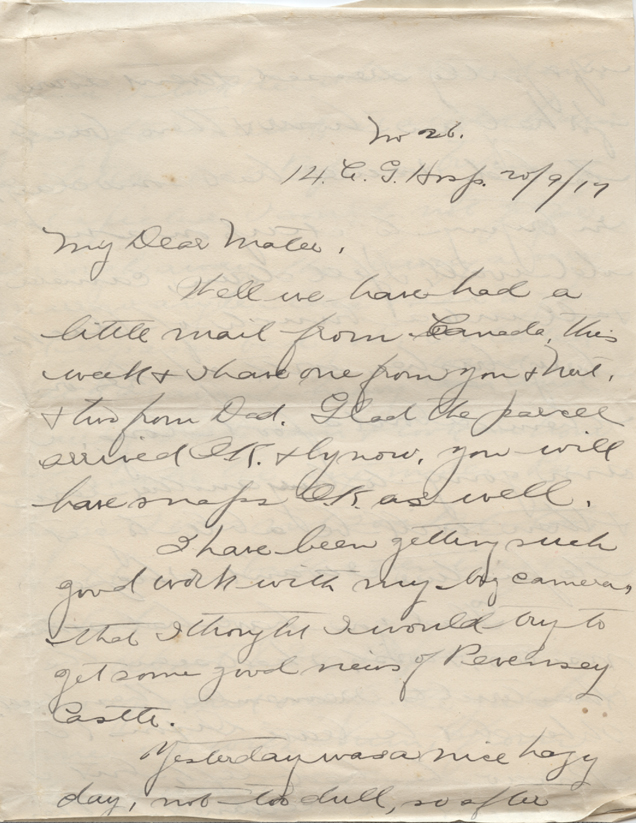 No 26.
14. C. G. Hosp. 20/9/17
My Dear Mater,
Well we have had a
little mail from Canada, this
week & I have one from you & Nat,
& two from Dad. Glad the parcel
arrived OK. & by now, you will
have snaps OK. as well.
I have been getting such
good work with my big camera,
that I thought I would try to
get some good views of Pevensey
Castle.
Yesterday was a nice hazy
day, not too dull, so after